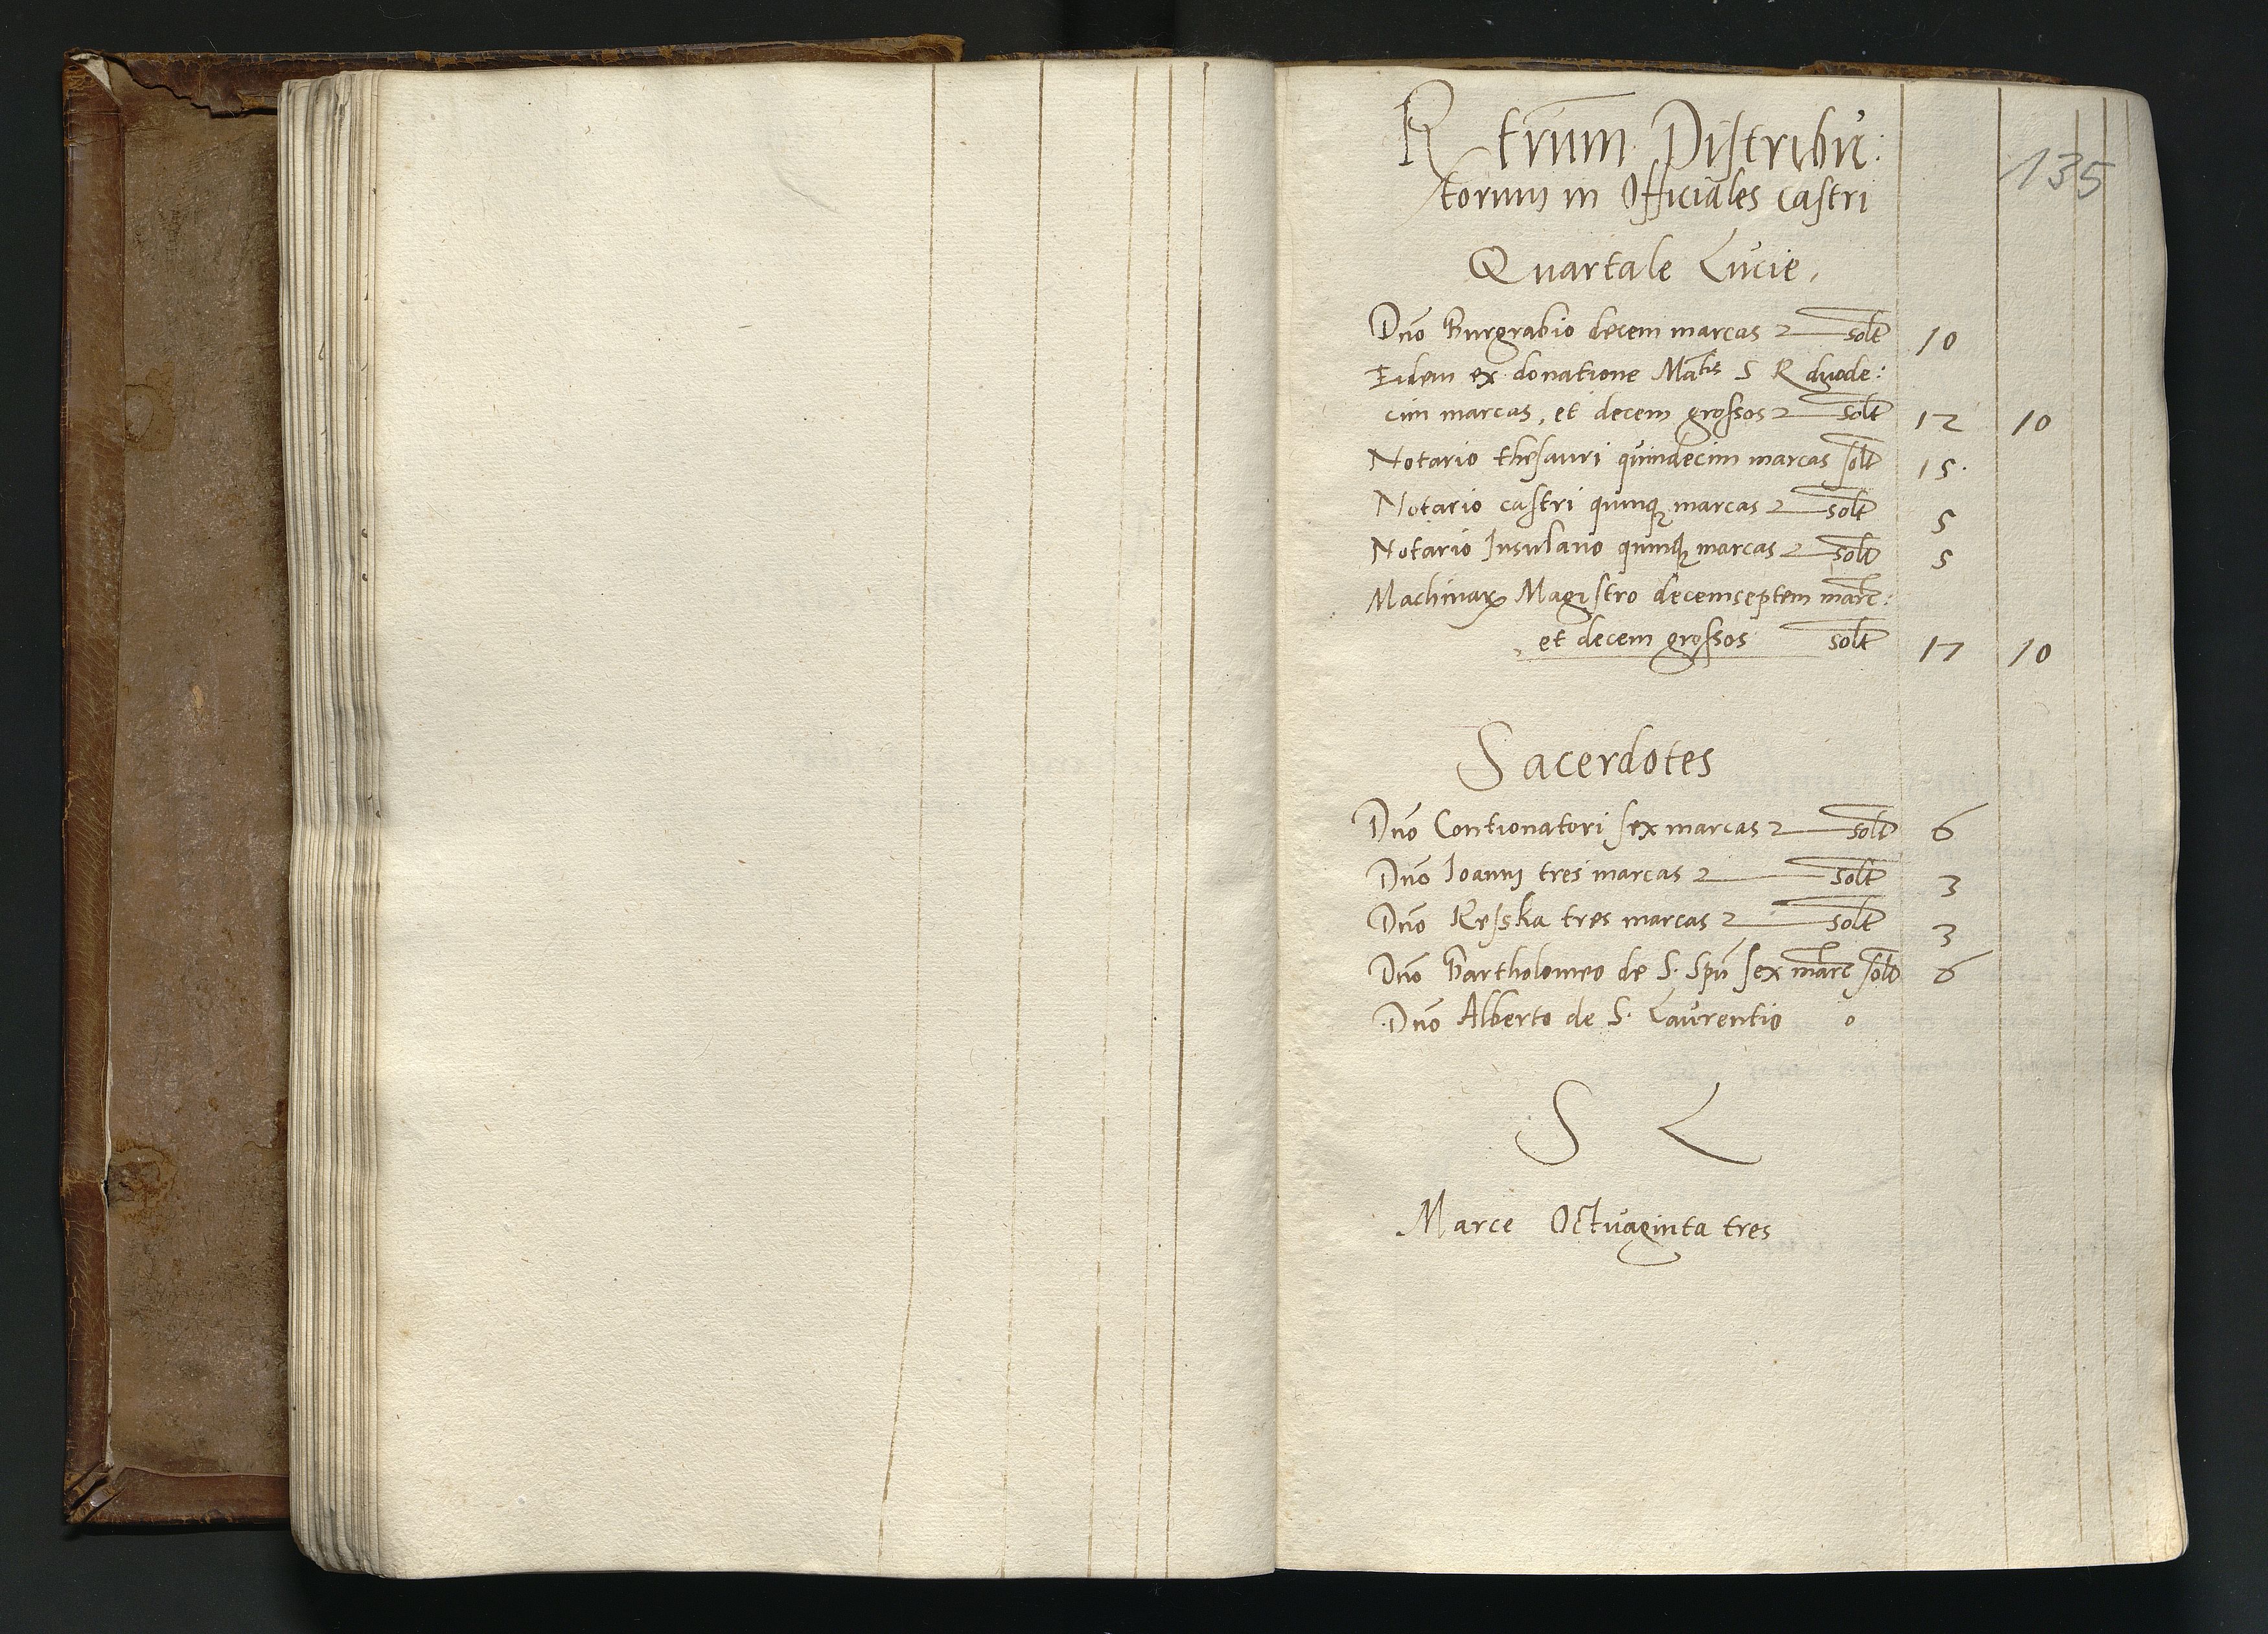 R trium Distribu:
torum in Officiales castri
135
Quartale Lucie,
Dno Burgrabio decem marcas solt 10
Eidem ex donatione Matis S R duode:
cim marcas, et decem grossos solt 12 10
Notario thesauri quindecim marcas solt 15.
Notario castri quinqz marcas solt 5
Notario Insulano quinqz marcas solt 5
Machinarꝝ Magistro decemseptem marc:
et decem grossos solt 17 10
Sacerdotes
Dno Contionatori sex marcas solt 6
Dno Ioanni tres marcas solt 3
Dno Resska tres marcas solt 3
Dno Bartholomeo de S. Spu sex marc solt 6
Dno Alberto de S. Laurentio 0
S L
Marce Octuaginta tres